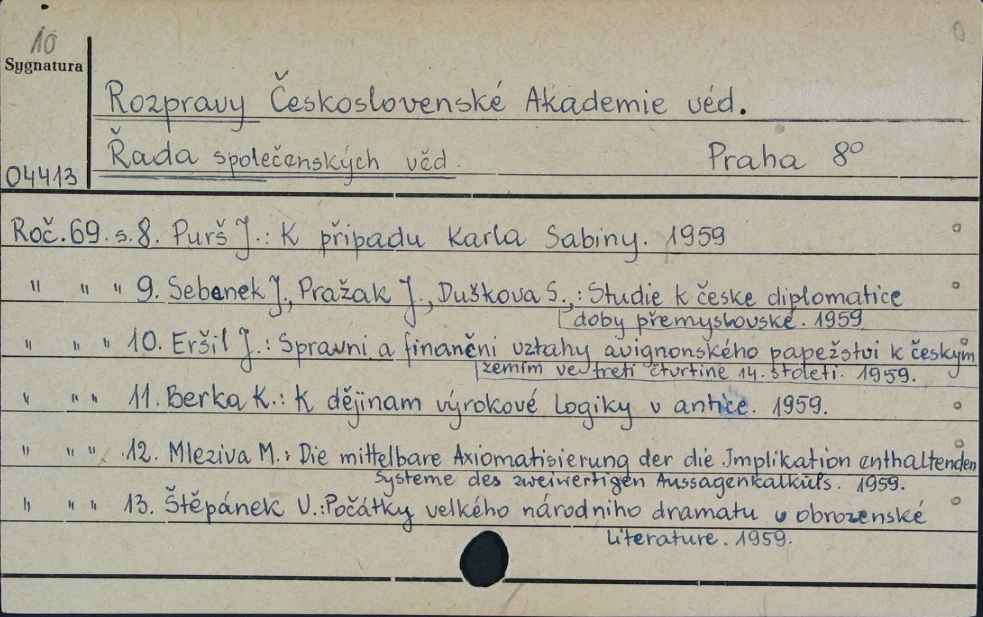 10
Sygnatura
Rozpravy Československé Akademie věd.
Řada společenských věd.
Praha 8º
04413
Roč. 69. s. 8. Purš J.: K připadu Karla Sabiny. 1959
" " " 9. Sebanek J., Pražak J., Duškova S.,: Studie k česke diplomatice
doby přemyslovské. 1959
" " " 10. Eršil J.: Spravni a finančni vztahy avignonského papežstvi k českým
zemím ve treti čtvrtině 14. stoleti. 1959.
" " " 11. Berka K.: K dějinam výrokové logiky v antice. 1959.
" " " 12. Mleziva M.: Die mittelbare Axiomatisierung der die Implikation enthaltenden
Systeme des zweiwertigen Aussagenkalküls. 1959.
" " " 13. Štěpánek V.: Počátky velkého národniho dramatu v obrozenské
literature. 1959.